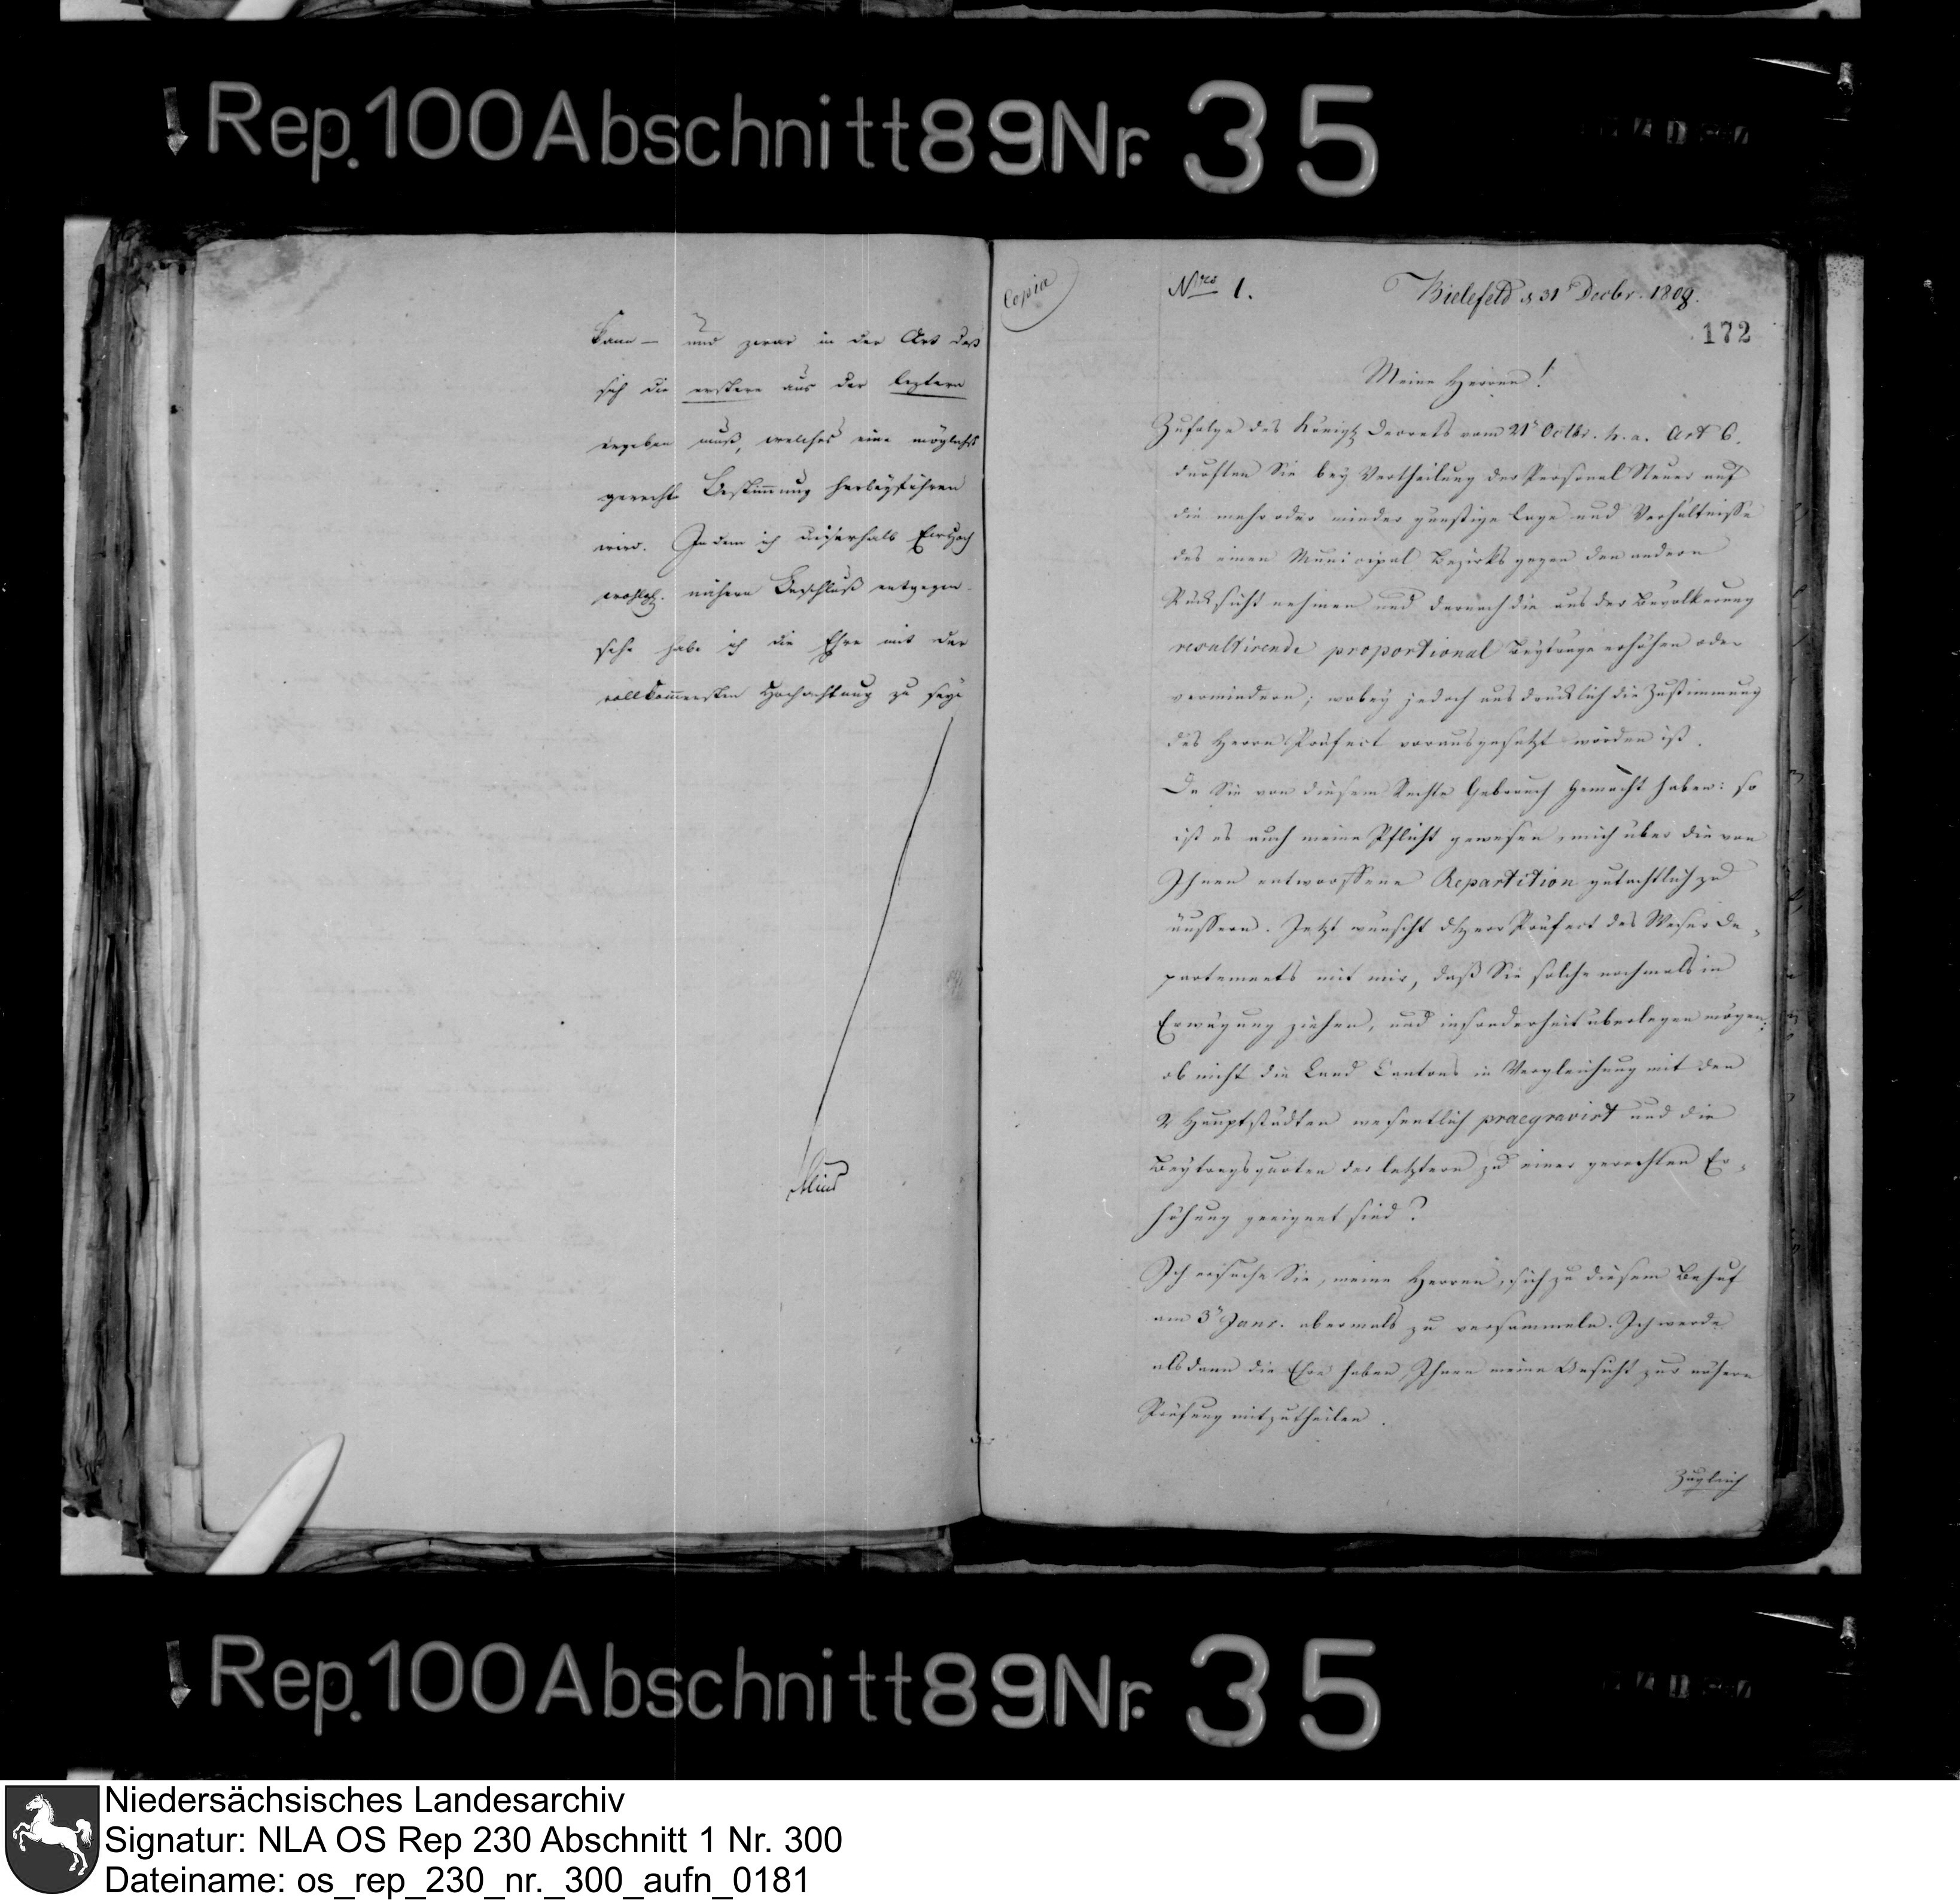 Rep. 100 Abschnitt 89 Nr. 35
kann – und zwar in der Art daß
sich die erstere aus der leztern
ergeben muß, welches eine möglichst
gerechte Bestimmung herbeyführen
wird. Indem ich dieserhalb Ew. Hoch
wohlgb. nähern Beschluß entgegen
sehe habe ich die Ehre mit der
vollkommensten Hochachtung zu seyn
Copia
Nro 1.
Bielefeld d 31t Decbr. 1808.
172
Meine Herren!
Zufolge des Königl. Decrets vom 21t Octbr. h. a. Art 6.
durften Sie bey Vertheilung der Personal Steuer auf
die mehr oder minder günstige Lage und Verhältnisse
des einen Municipal Bezirks gegen den andern
Rücksicht nehmen und darnach die aus der Bevölkerung
resultirende proportional Beyträge erhöhen oder
vermindern; wobey jedoch ausdrücklich die Zustimmung
des Herrn Präfect vorausgesetzt worden ist.
Da Sie von diesem Rechte Gebrauch gemacht haben: so
ist es auch meine Pflicht gewesen, mich über die von
Ihnen entworffene Repartition gutachtlich zu
äussern. Jetzt wünscht d Herr Präfect des Weser De-
partements mit mir, daß Sie solche nochmals in
Erwägung ziehen, und insonderheit überlegen mögen:
ob nicht die Land Cantons in Vergleichung mit den
2 Hauptstädten wesentlich praegravirt und die
Beytragsquoten der letztern zu einer gerechten Er-
höhung geeignet sind?
Ich ersuche Sie, meine Herren, sich zu diesem Behuf
am 3t Janr. abermals zu versammeln. Ich werde
alsdann die Ehre haben Ihnen meine Ansicht zur nähern
Prüfung mitzutheilen.
Zugleich
Rep. 100 Abschnitt 89 Nr. 35
Niedersächsisches Landesarchiv
Signatur: NLA OS Rep 230 Abschnitt 1 Nr. 300
Dateiname: os_rep_230_nr._300_aufn_0181